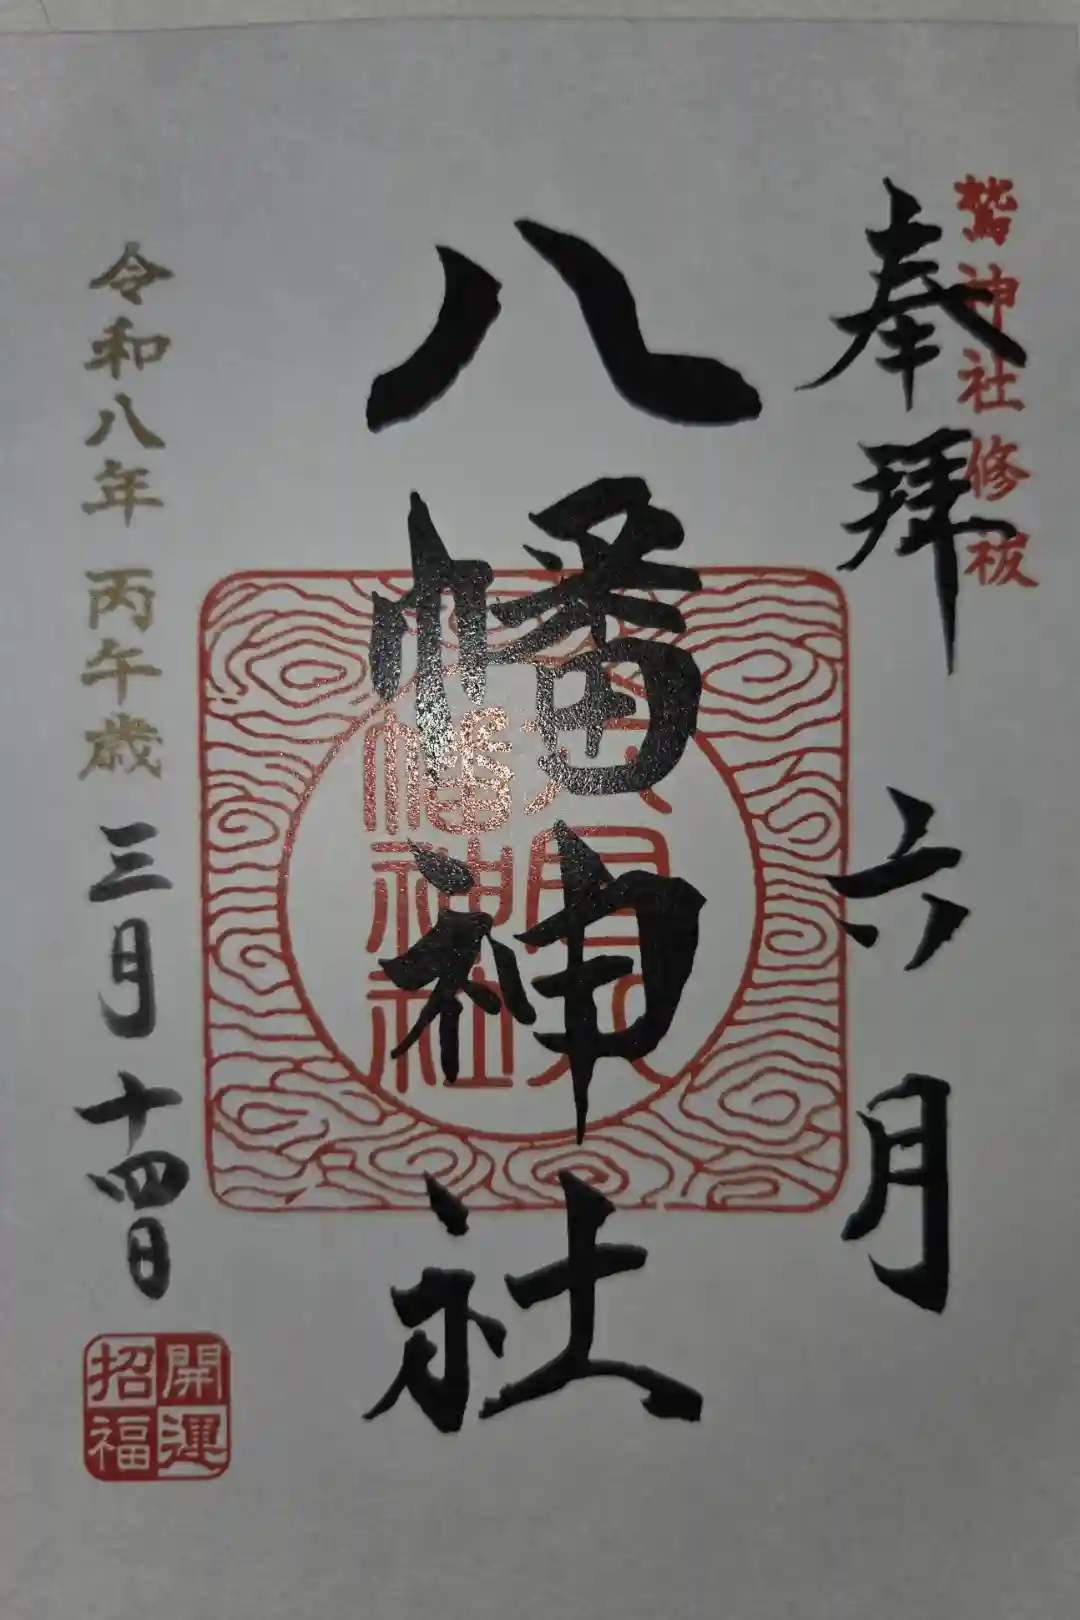 鷲神社修祓
奉拝
六月
八幡神社
六月
八幡神社
令和八年 丙午歳 三月十四日
開運
招福